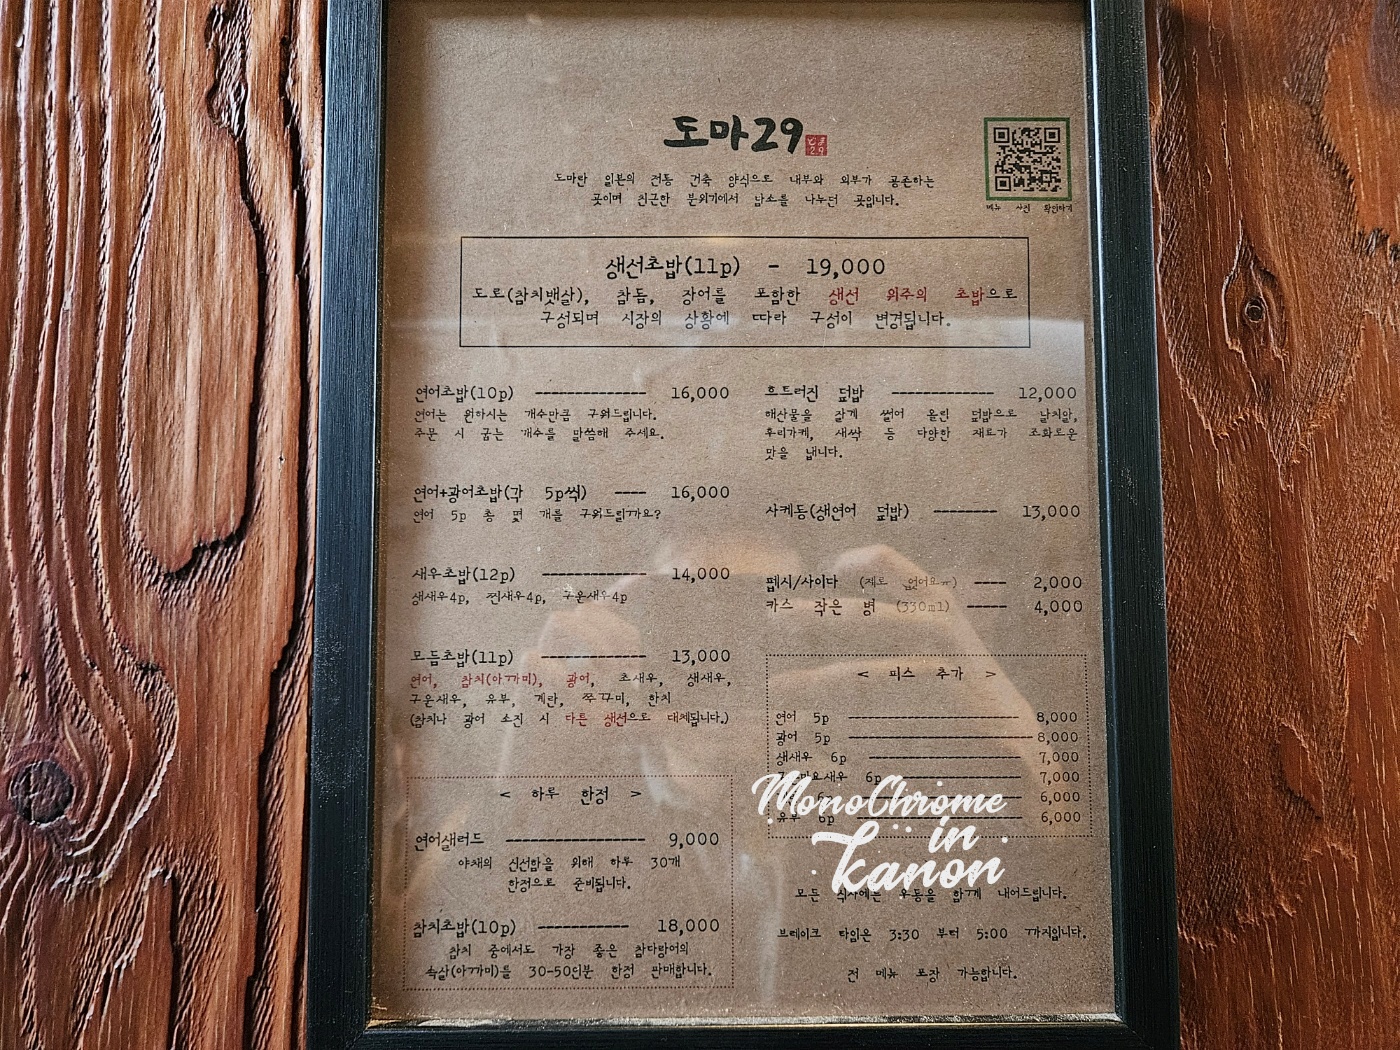 도마29
도마란 일본의 전통 건축 양식으로 내부와 외부가 공존하는
곳이며 친근한 분위기에서 담소를 나누던 곳입니다.
메뉴 사진 확인하기
생선초밥(11p) - 19,000
도로(참치뱃살), 참돔, 장어를 포함한 생선 위주의 초밥으로
구성되며 시장의 상황에 따라 구성이 변경됩니다.
연어초밥(10p) -------------- 16,000
연어는 원하시는 개수만큼 구워드립니다.
주문 시 굽는 개수를 말씀해 주세요.
연어+광어초밥(각 5p씩) ---- 16,000
연어 5p 총 몇 개를 구워드릴까요?
새우초밥(12p) ------------- 14,000
생새우4p, 찐새우4p, 구운새우4p
모듬초밥(11p) ------------- 13,000
연어, 참치(아까미), 광어, 초새우, 생새우,
구운새우, 유부, 계란, 쭈꾸미, 한치
(참치나 광어 소진 시 다른 생선으로 대체됩니다.)
< 하루 한정 >
연어샐러드 ----------------- 9,000
야채의 신선함을 위해 하루 30개
한정으로 준비됩니다.
참치초밥(10p) ----------- 18,000
참치 중에서도 가장 좋은 참다랑어의
속살(아까미)를 30-50인분 한정 판매합니다.
흐트러진 덮밥 ------------- 12,000
해산물을 잘게 썰어 올린 덮밥으로 날치알,
후리가케, 새싹 등 다양한 재료가 조화로운
맛을 냅니다.
사케동(생연어 덮밥) -------- 13,000
펩시/사이다 (제로 없어요ㅠ) ---- 2,000
카스 작은 병 (330ml) ----- 4,000
< 피스 추가 >
연어 5p --------------------- 8,000
광어 5p --------------------- 8,000
생새우 6p ------------------- 7,000
새우 6p ---------------- 7,000
6p 6,000
유부 6p --------------------- 6,000
MonoChrome
in
kanon
모든 식사에는 우동을 함께 내어드립니다.
브레이크 타임은 3:30 부터 5:00 까지입니다.
전 메뉴 포장 가능합니다.